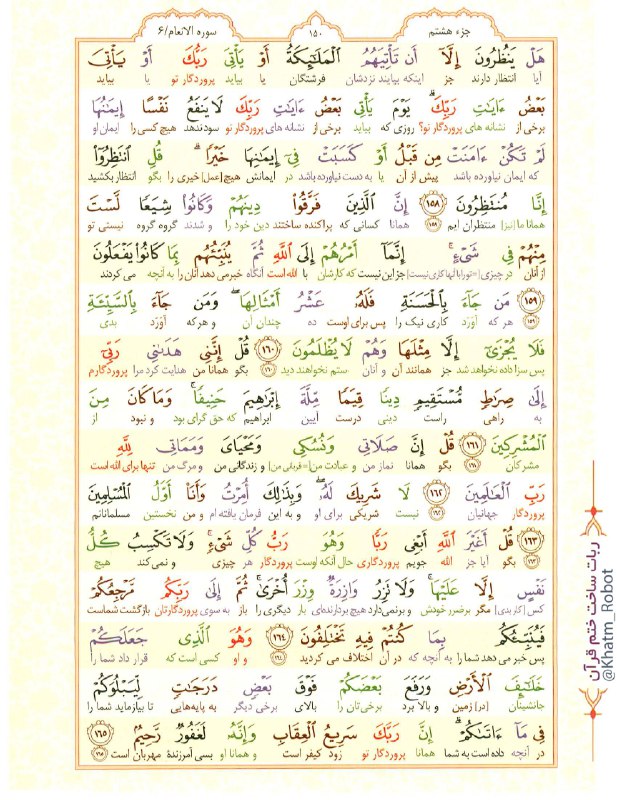 جزء هشتم
۱۵۰
سوره الانعام/۶
هَلْ يَنْظُرُونَ إِلَّآ أَن تَأْتِيَهُمُ الْمَلَٰٓئِكَةُ أَوْ يَأْتِىَ رَبُّكَ أَوْ يَأْتِىَ
آیا انتظار دارند جز اینکه بیایند نزدشان فرشتگان یا بیاید پروردگار تو یا بیاید
بَعْضُ ءَايَٰتِ رَبِّكَ ۗ يَوْمَ يَأْتِى بَعْضُ ءَايَٰتِ رَبِّكَ لَا يَنفَعُ نَفْسًا إِيمَٰنُهَا
برخی از نشانه های پروردگار تو؟ روزی که بیاید برخی از نشانه های پروردگار تو سود ندهد هیچ کسی را ایمان او
لَمْ تَكُنْ ءَامَنَتْ مِن قَبْلُ أَوْ كَسَبَتْ فِىٓ إِيمَٰنِهَا خَيْرًا ۗ قُلِ انتَظِرُوٓا
که ایمان نیاورده باشد پیش از آن یا به دست نیاورده باشد در ایمانش هیچ[عمل] خیری را بگو انتظار بکشید
إِنَّا مُنتَظِرُونَ ۱۵۸ إِنَّ الَّذِينَ فَرَّقُوا دِينَهُمْ وَكَانُوا شِيَعًا لَّسْتَ
همانا ما[نیز] منتظران ایم ۱۵۸ همانا کسانی که پراکنده ساختند دین خود را و شدند گروه گروه نیستی تو
مِنْهُمْ فِى شَىْءٍ ۚ إِنَّمَآ أَمْرُهُمْ إِلَى اللَّهِ ثُمَّ يُنَبِّئُهُم بِمَا كَانُوا يَفْعَلُونَ
از آنان در چیزی[=تو را با آنها کاری نیست] جز این نیست که کارشان با الله است آنگاه خبر می دهد آنان را به آنچه می کردند
۱۵۹ مَن جَآءَ بِالْحَسَنَةِ فَلَهُۥ عَشْرُ أَمْثَالِهَا ۖ وَمَن جَآءَ بِالسَّيِّئَةِ
۱۵۹ هر که آوَرَد کاری نیک را پس برای اوست ده چندان آن و هر که آوَرَد بدی
فَلَا يُجْزَىٰٓ إِلَّا مِثْلَهَا وَهُمْ لَا يُظْلَمُونَ ۱۶۰ قُلْ إِنَّنِى هَدَىٰنِى رَبِّىٓ
پس سزا داده نخواهد شد جز همانند آن و آنان ستم نخواهند دید ۱۶۰ بگو همانا من هدایت کرد مرا پروردگارم
إِلَىٰ صِرَٰطٍ مُّسْتَقِيمٍ دِينًا قِيَمًا مِّلَّةَ إِبْرَٰهِيمَ حَنِيفًا ۚ وَمَا كَانَ مِنَ
به راهی راست دینی درست آیین ابراهیم که حق گرای بود و نبود از
الْمُشْرِكِينَ ۱۶۱ قُلْ إِنَّ صَلَاتِى وَنُسُكِى وَمَحْيَاىَ وَمَمَاتِى لِلَّهِ
مشرکان ۱۶۱ بگو همانا نماز من و عبادت من[=قربانی من] و زندگانی من و مرگ من تنها برای الله است
رَبِّ الْعَٰلَمِينَ ۱۶۲ لَا شَرِيكَ لَهُۥ ۖ وَبِذَٰلِكَ أُمِرْتُ وَأَنَا۠ أَوَّلُ الْمُسْلِمِينَ
پروردگار جهانیان ۱۶۲ نیست شریکی برای او و به این فرمان یافته ام و من نخستین مسلمانانم
۱۶۳ قُلْ أَغَيْرَ اللَّهِ أَبْغِى رَبًّا وَهُوَ رَبُّ كُلِّ شَىْءٍ ۚ وَلَا تَكْسِبُ كُلُّ
۱۶۳ بگو آیا جز الله جویم پروردگاری حال آنکه اوست پروردگار هر چیزی و نمی کند هیچ
نَفْسٍ إِلَّا عَلَيْهَا ۚ وَلَا تَزِرُ وَازِرَةٌ وِزْرَ أُخْرَىٰ ۚ ثُمَّ إِلَىٰ رَبِّكُم مَّرْجِعُكُمْ
کس[کار بدی] مگر بر ضرر خودش و بر نمی دارد هیچ بردارنده ای بار دیگری را باز به سوی پروردگارتان بازگشت شماست
فَيُنَبِّئُكُم بِمَا كُنتُمْ فِيهِ تَخْتَلِفُونَ ۱۶۴ وَهُوَ الَّذِى جَعَلَكُمْ
پس خبر می دهد شما را به آنچه که در آن اختلاف می کردید ۱۶۴ و او کسی است که قرار داد شما را
خَلَٰٓئِفَ الْأَرْضِ وَرَفَعَ بَعْضَكُمْ فَوْقَ بَعْضٍ دَرَجَٰتٍ لِّيَبْلُوَكُمْ
جانشینان [در] زمین و بالا برد برخی تان را بالای برخی دیگر به پایه‌هایی تا بیازماید شما را
فِى مَآ ءَاتَىٰكُمْ ۗ إِنَّ رَبَّكَ سَرِيعُ الْعِقَابِ وَإِنَّهُۥ لَغَفُورٌ رَّحِيمٌ ۱۶۵
در آنچه داده است به شما همانا پروردگار تو زود کیفر است و همانا او بسی آمرزندهٔ مهربان است ۱۶۵
ربات ساخت ختم قرآن
@Khatm_Robot